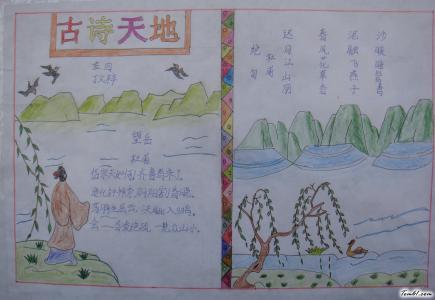 古诗天地
望岳
杜甫
岱宗夫如何?齐鲁青未了。
造化钟神秀,阴阳割昏晓。
荡胸生层云,决眦入归鸟。
会当凌绝顶,一览众山小。
绝句
杜甫
迟日江山丽
春风花草香
泥融飞燕子
沙暖睡鸳鸯
Tom61.com